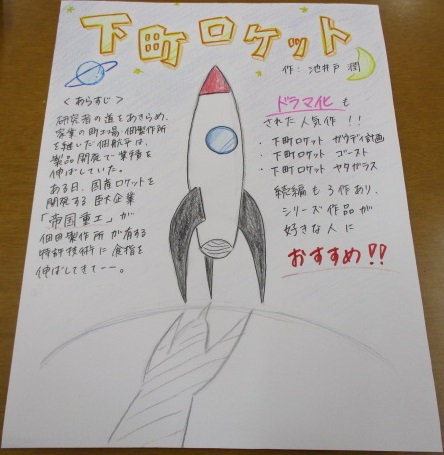 下町ロケット
作：池井戸 潤
＜あらすじ＞
研究者の道をあきらめ、
家業の町工場・佃製作所
を継いだ佃航平は、
製品開発で業績を
伸ばしていた。
ある日、国産ロケットを
開発する巨大企業
「帝国重工」が
佃田製作所が有する
特許技術に食指を
伸ばしてきて――。
ドラマ化も
された人気作！！
・下町ロケット ガウディ計画
・下町ロケット ゴースト
・下町ロケット ヤタガラス
続編も3作あり、
シリーズ作品が
好きな人に
おすすめ!!